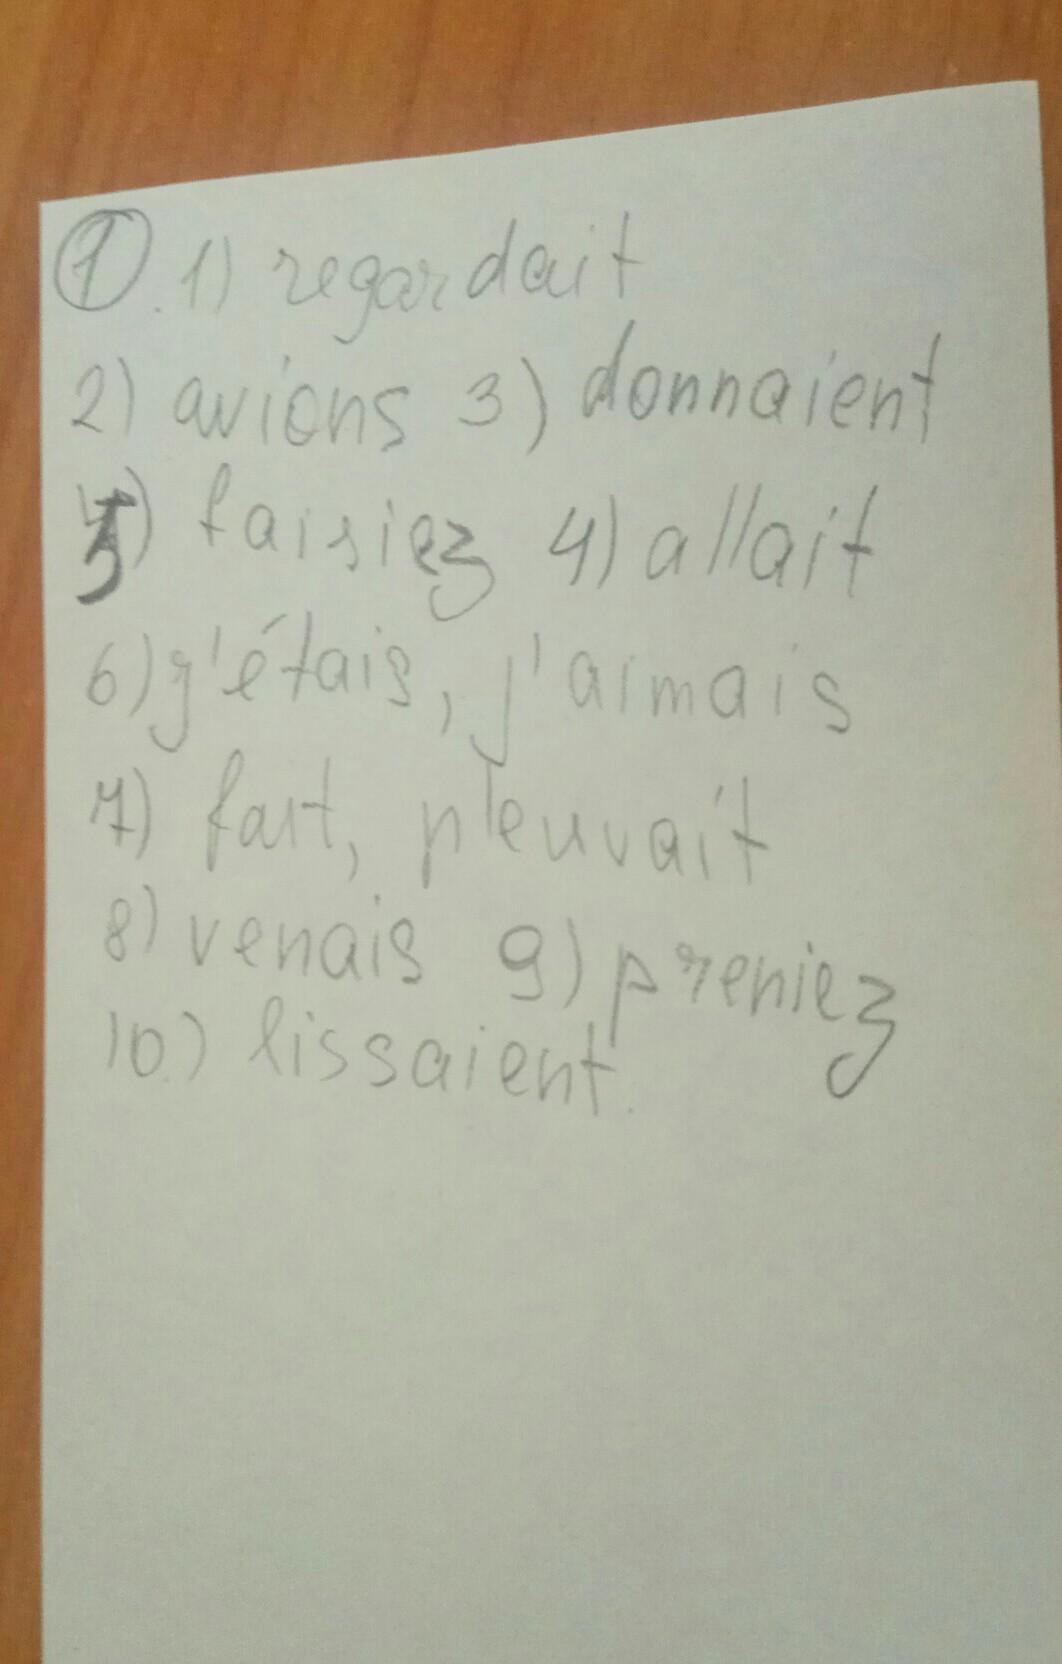 1. 1) regardait
2) avions 3) donnaient
5) faisiez 4) allait
6) j'étais, j'aimais
7) fait, pleuvait
8) venais 9) preniez
10) lissaient.